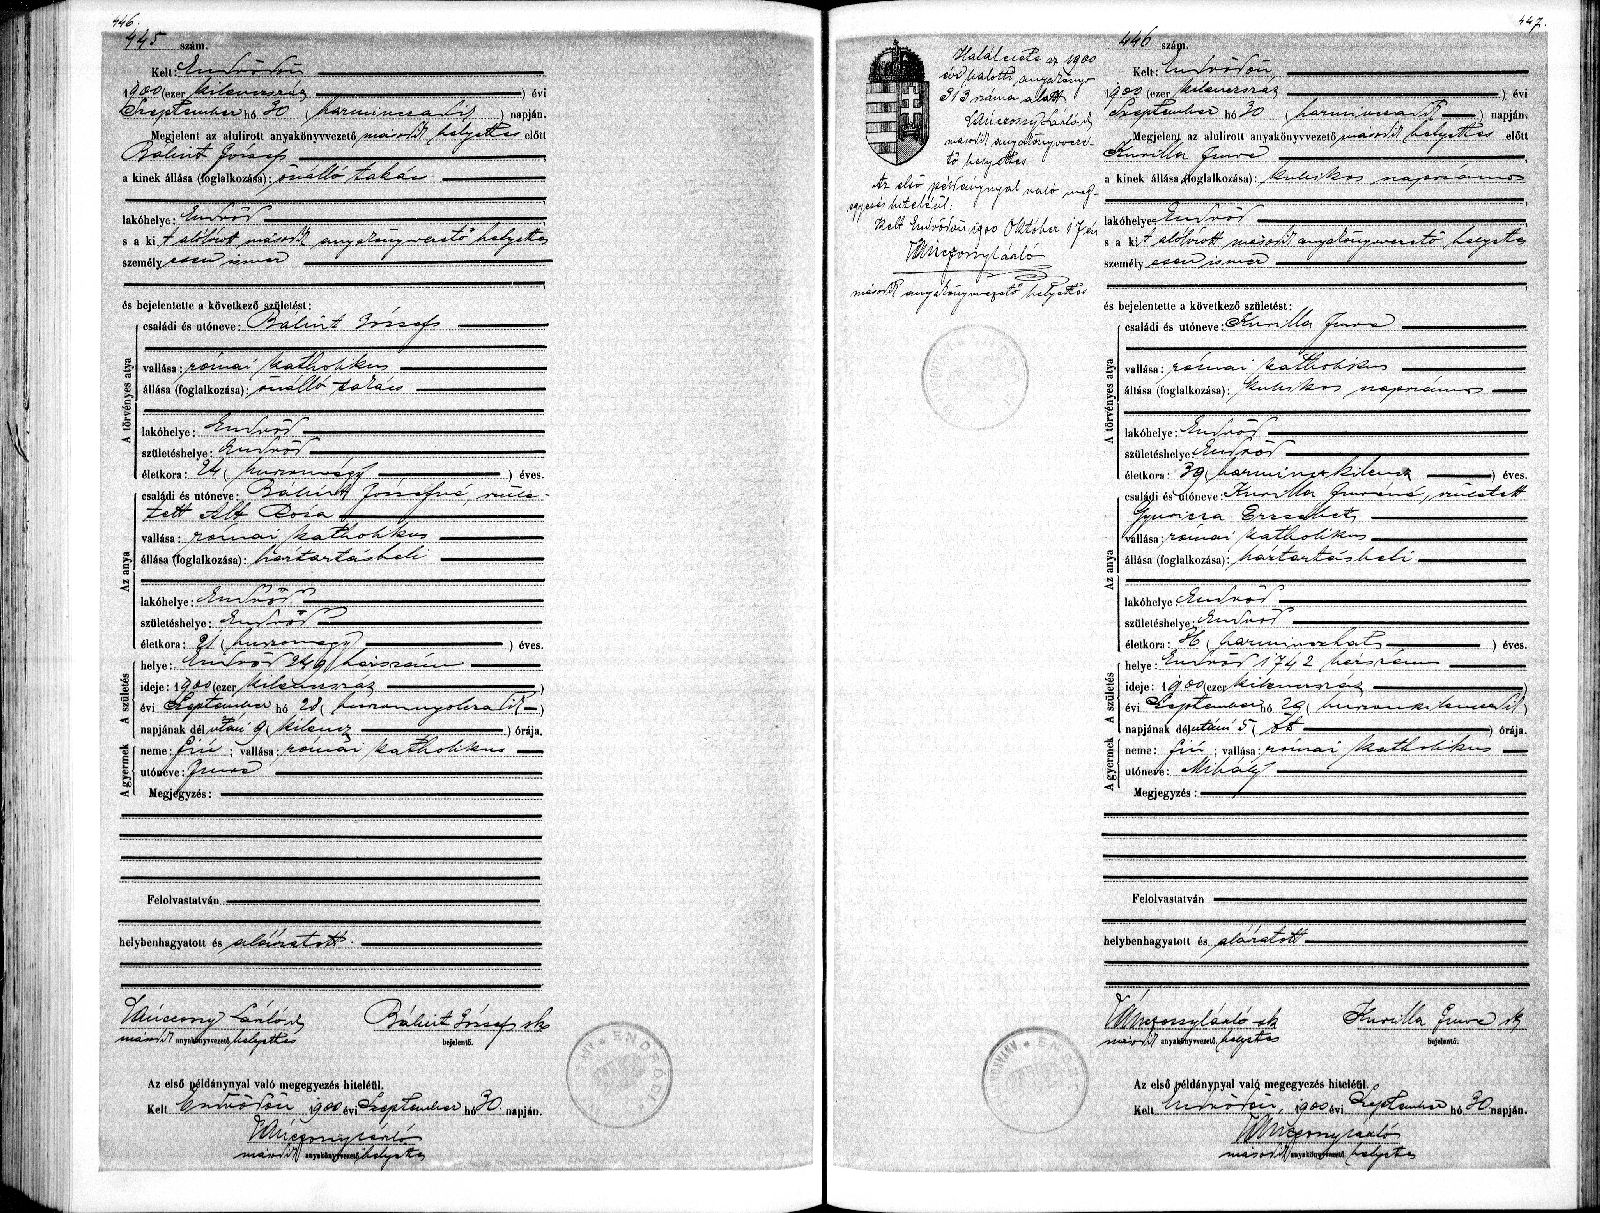 446.
445 szám.
Kelt: Endrődön
1900 (ezer kilenczszáz) évi
Szeptember hó 30 (harminczadik) napján.
Megjelent az alulirott anyakönyvvezető második helyettes előtt
Bálint József
a kinek állása (foglalkozása): önálló takács
lakóhelye: Endrőd
s a kit alólirott második anyakönyvvezető helyettes
személyesen ismer
és bejelentette a következő születést:
A törvényes atya
családi és utóneve: Bálint József
vallása: római katholikus
állása (foglalkozása): önálló takács
lakóhelye: Endrőd
születéshelye: Endrőd
életkora: 24 (huszonnégy) éves.
Az anya
családi és utóneve: Bálint Józsefné, szüle-
tett Alt Róza
vallása: római katholikus
állása (foglalkozása): háztartásbeli
lakóhelye: Endrőd
születéshelye: Endrőd
életkora: (huszonegy) éves.
A születés
helye: Endrőd 249 házszám
ideje: 1900 (ezer kilenczszáz)
évi Szeptember hó 28 (huszonnyolczadik)
napjának délutáni 9 (kilencz) órája.
A gyermek
neme: fiú; vallása: római katholikus
utóneve: Imre
Megjegyzés:
Felolvastatván
helybenhagyatott és aláiratott.
László sk
második anyakönyvvezető helyettes
Bálint József sk
bejelentő.
Az első példánynyal való megegyezés hiteléül.
Kelt Endrődön 1900 évi Szeptember hó 30 napján.
László
második anyakönyvvezető helyettes
447.
Halálesete az 1900
évi halotti anyakönyv
313 száma alatt
László sk
második anyakönyvveze-
tő helyettes
Az első példánynyal való meg-
egyezés hiteléül.
Kelt Endrődön 1900 Október 17én
László
második anyakönyvvezető helyettes
446 szám.
Kelt: Endrődön
1900 (ezer kilenczszáz) évi
Szeptember hó 30 (harminczadik) napján.
Megjelent az alulirott anyakönyvvezető második helyettes előtt
Kurilla Imre
a kinek állása (foglalkozása): kubikos napszámos
lakóhelye: Endrőd
s a kit alólirott második anyakönyvvezető helyettes
személyesen ismer
és bejelentette a következő születést:
A törvényes atya
családi és utóneve: Kurilla Imre
vallása: római katholikus
állása (foglalkozása): kubikos napszámos
lakóhelye: Endrőd
születéshelye: Endrőd
életkora: 39 (harminczkilencz) éves.
Az anya
családi és utóneve: Kurilla Imréné, született
Gyuricza Erzsébet
vallása: római katholikus
állása (foglalkozása): háztartásbeli
lakóhelye: Endrőd
születéshelye: Endrőd
életkora: 36 (harminczhat) éves.
A születés
helye: Endrőd 1742 házszám
ideje: 1900 (ezer kilenczszáz)
évi Szeptember hó 29 (huszonkilenczedik)
napjának délutáni 5 (öt) órája.
A gyermek
neme: fiú; vallása: római katholikus
utóneve: Mihály
Megjegyzés:
Felolvastatván
helybenhagyatott és aláiratott
László sk
második anyakönyvvezető helyettes
Kurilla Imre sk
bejelentő.
Az első példánynyal való megegyezés hiteléül.
Kelt Endrődön, 1900 évi Szeptember hó 30 napján.
László
második anyakönyvvezető helyettes